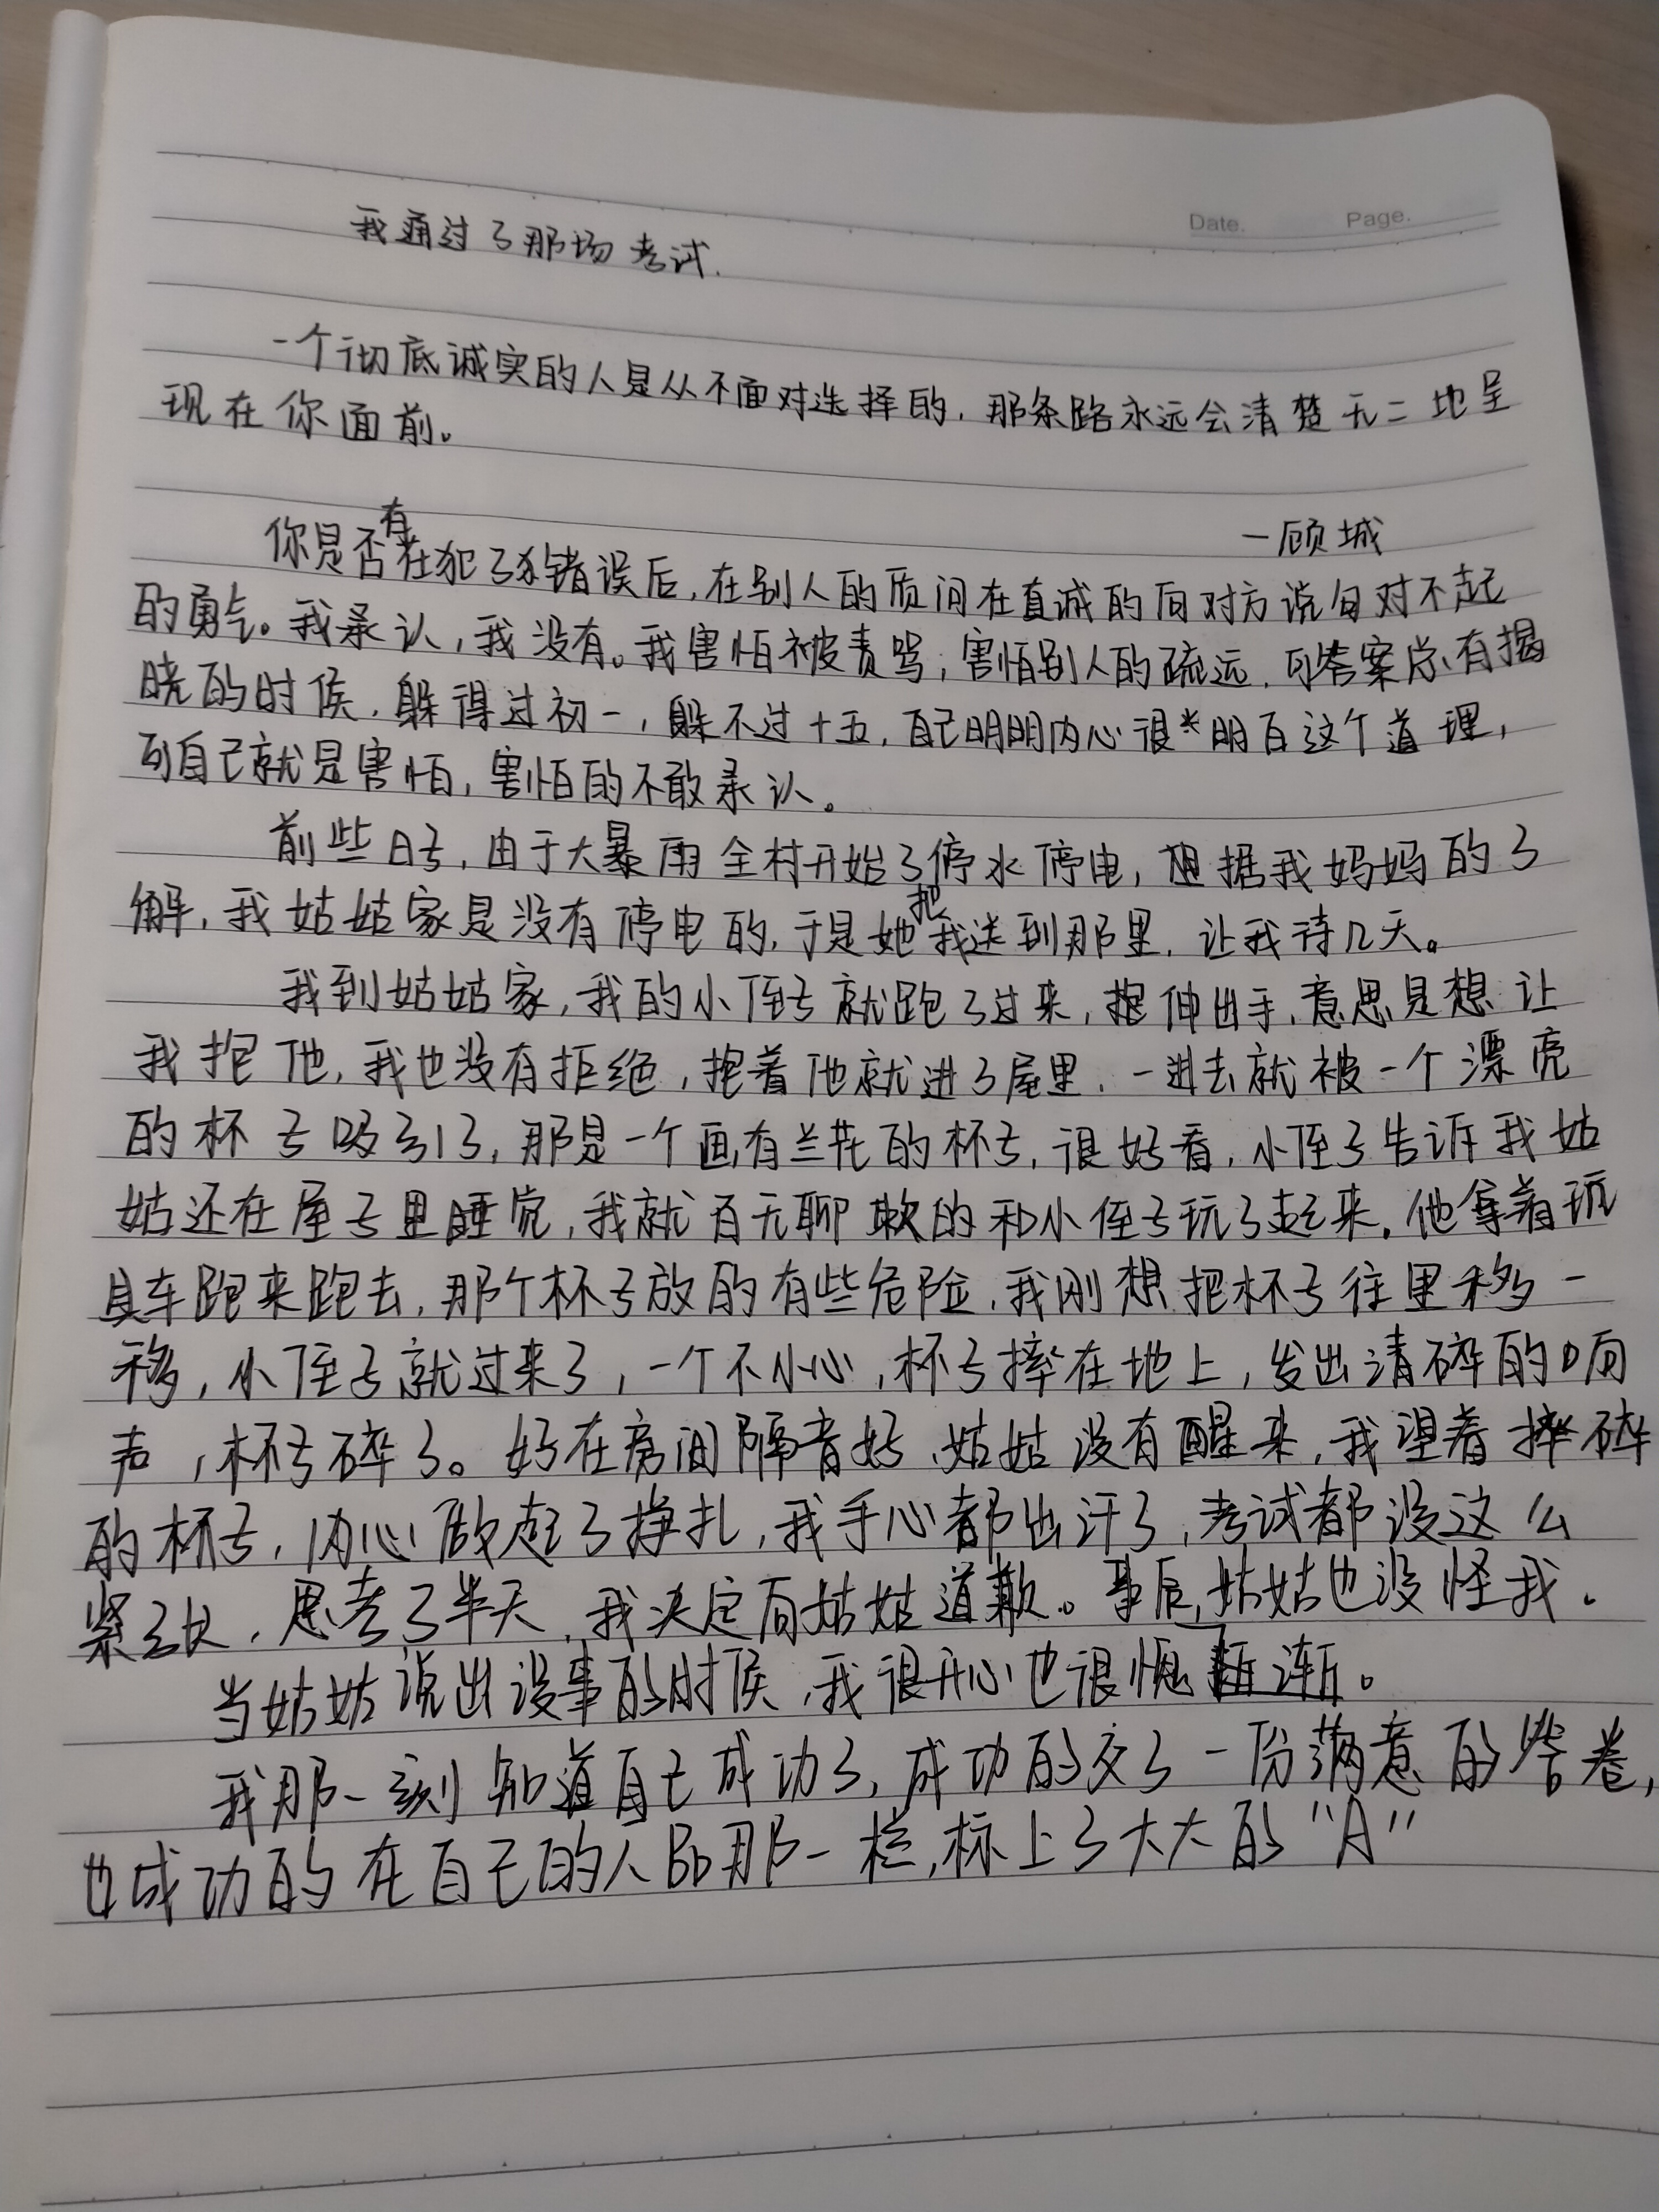 Date.
Page.
我通过了那场考试.
一个彻底诚实的人是从不面对选择的,那条路永远会清楚无二地呈
现在你面前。
一顾城
你是否有在犯了错误后,在别人的质问在直诚的向对方说句对不起
的勇气。我承认,我没有。我害怕被责骂,害怕别人的疏远,可答案总有揭
晓的时候,躲得过初一,躲不过十五,自己明明内心很明白这个道理,
可自己就是害怕,害怕的不敢承认。
前些日子,由于大暴雨全村开始了停水停电,据我妈妈的了
解,我姑姑家是没有停电的,于是她把我送到那里,让我待几天。
我到姑姑家,我的小侄子就跑了过来,伸出手,意思是想让
我抱他,我也没有拒绝,抱着他就进了屋里,一进去就被一个漂亮
的杯子吸引了,那是一个画有兰花的杯子,很好看,小侄子告诉我姑
姑还在屋子里睡觉,我就百无聊赖的和小侄子玩了起来,他拿着玩
具车跑来跑去,那个杯子放的有些危险,我刚想把杯子往里移一
移,小侄子就过来了,一个不小心,杯子摔在地上,发出清碎的响
声,杯子碎了。好在房间隔音好,姑姑没有醒来,我望着摔碎
的杯子,内心做起了挣扎,我手心都出汗了,考试都没这么
紧张,思考了半天,我决定向姑姑道歉。事后,姑姑也没怪我.
当姑姑说出没事的时候,我很开心也很愧渐。
我那一刻知道自己成功了,成功的交了一份满意的答卷,
也成功的在自己的人品那一栏,标上了大大的"A"